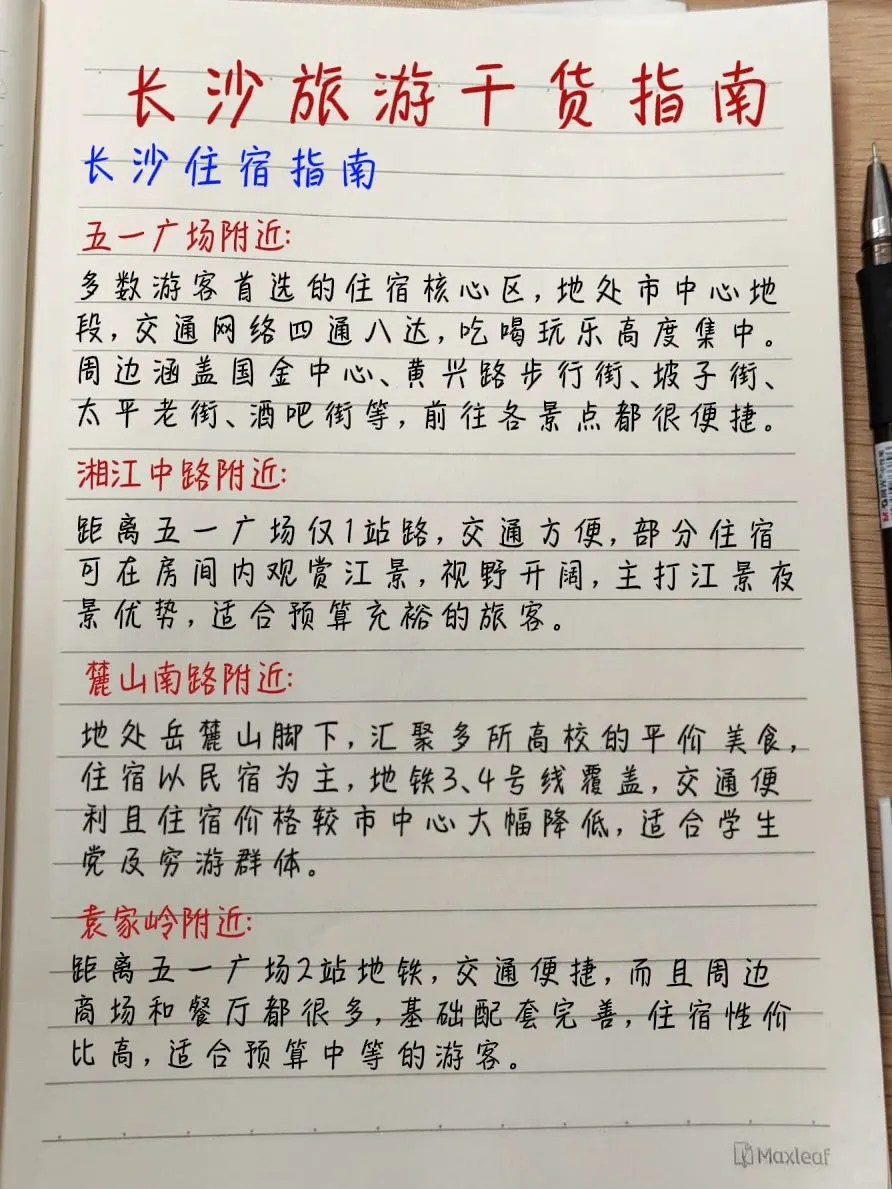 长沙旅游干货指南
长沙住宿指南
五一广场附近:
多数游客首选的住宿核心区,地处市中心地
段,交通网络四通八达,吃喝玩乐高度集中。
周边涵盖国金中心、黄兴路步行街、坡子街、
太平老街、酒吧街等,前往各景点都很便捷。
湘江中路附近:
距离五一广场仅1站路,交通方便,部分住宿
可在房间内观赏江景,视野开阔,主打江景夜
景优势,适合预算充裕的旅客。
麓山南路附近:
地处岳麓山脚下,汇聚多所高校的平价美食,
住宿以民宿为主,地铁3、4号线覆盖,交通便
利且住宿价格较市中心大幅降低,适合学生
党及穷游群体。
袁家岭附近:
距离五一广场2站地铁,交通便捷,而且周边
商场和餐厅都很多,基础配套完善,住宿性价
比高,适合预算中等的游客。
Maxleaf